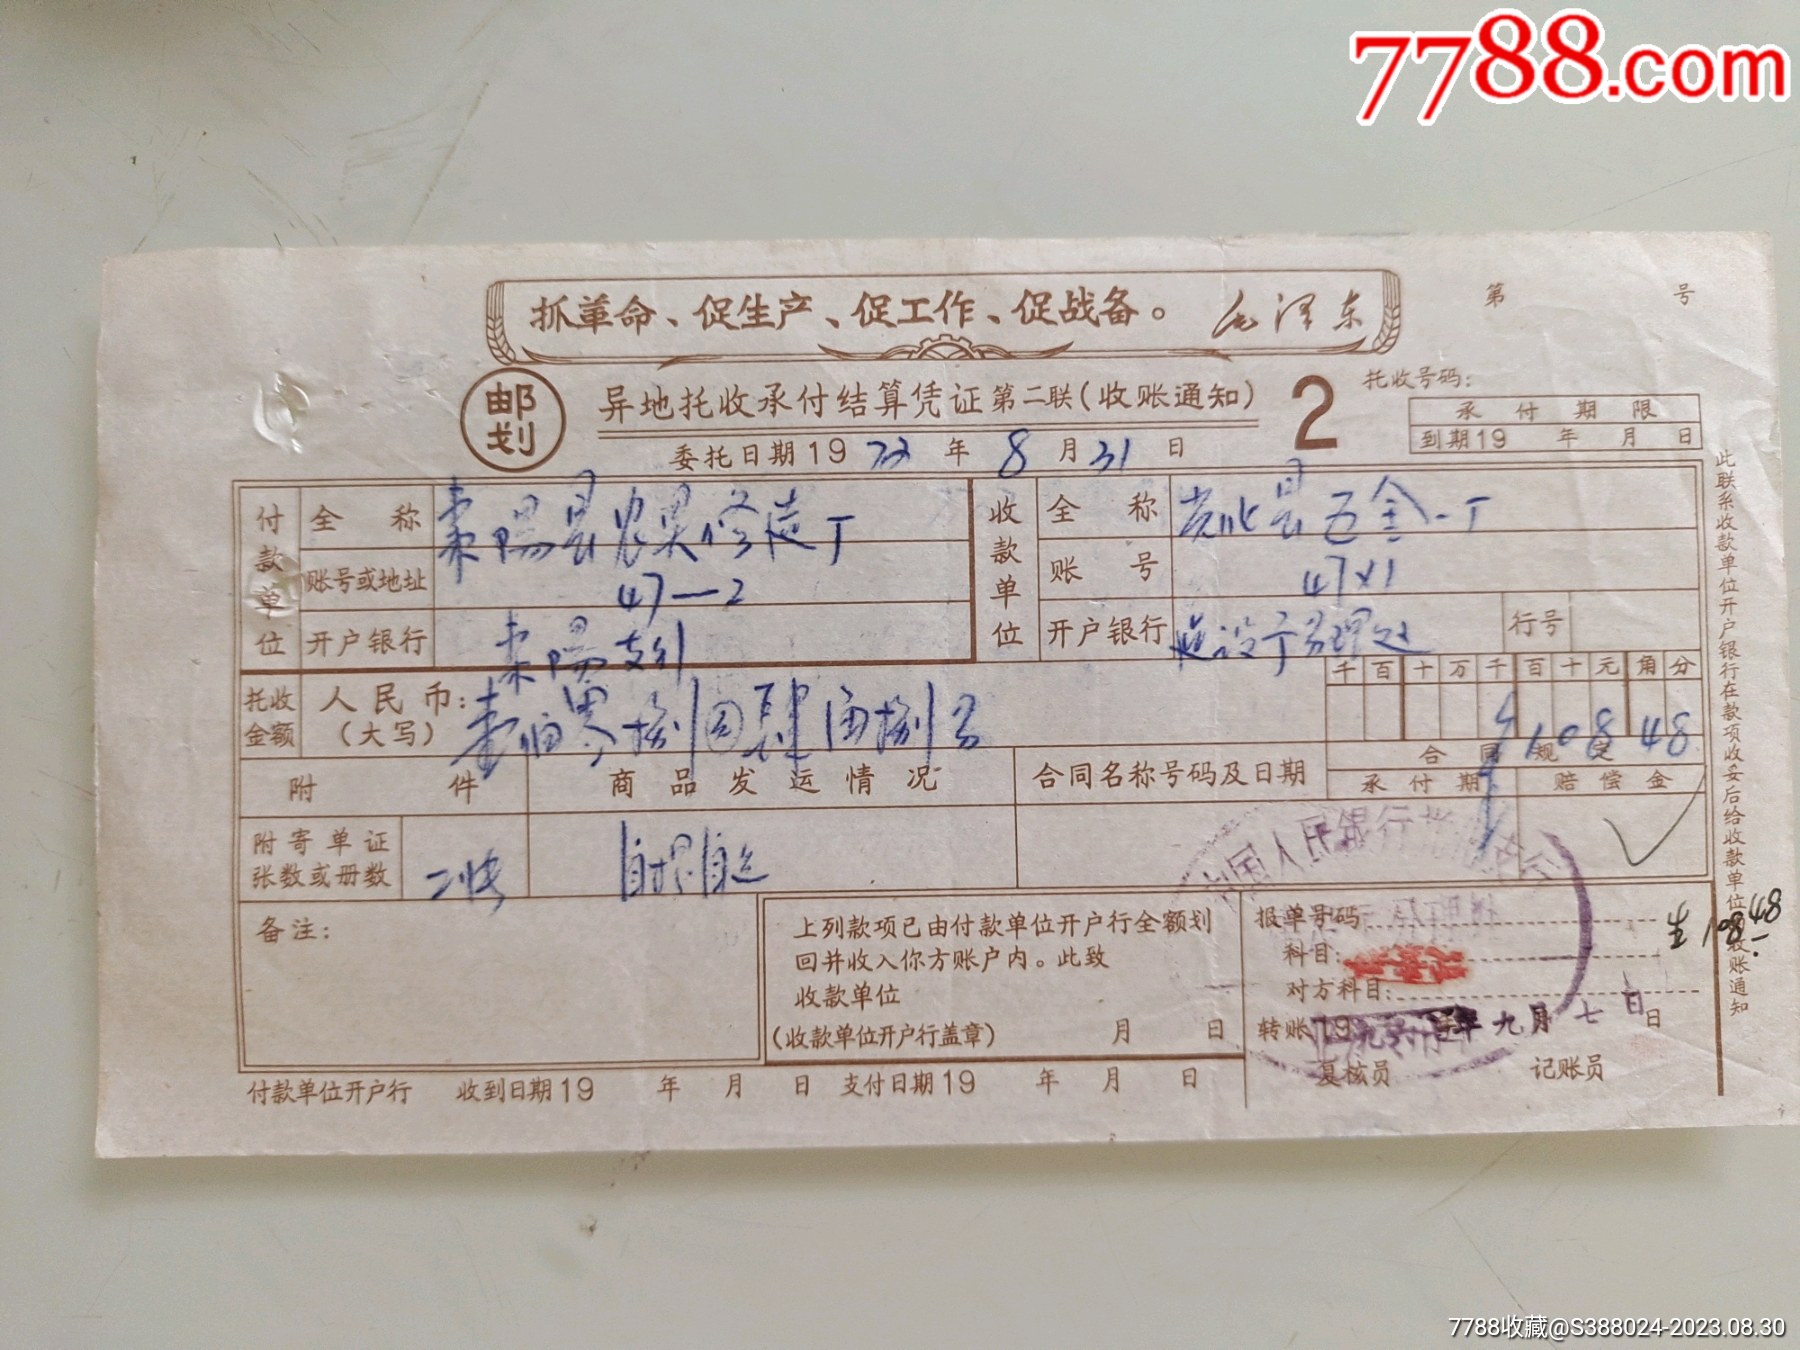 7788.com
抓革命、促生产、促工作、促战备。 毛泽东
第 号
邮划
异地托收承付结算凭证 第二联(收账通知)
2
托收号码:
承付期限
到期19 年 月 日
委托日期19 72 年 8 月 31 日
付款单位
全称 枣阳县农具修造厂
账号或地址 47—2
开户银行 枣阳支行
收款单位
全称 光化县五金一厂
账号 47×1
开户银行
行号
托收金额
人民币:(大写) 壹佰零捌元肆角捌分
千百十万千百十元角分
¥10848
附件
商品发运情况
合同名称号码及日期
合同规定
承付期
赔偿金
附寄单证张数或册数 二张
自提自运
备注:
上列款项已由付款单位开户行全额划
回并收入你方账户内。此致
收款单位
(收款单位开户行盖章) 月 日
报单号码
科目:
对方科目:
转账19 年九月七日 日
复核员 记账员
108.48
付款单位开户行 收到日期19 年 月 日 支付日期19 年 月 日
此联系收款单位开户银行在款项收妥后给收款单位的收账通知
中国人民银行
7788收藏@S388024-2023.08.30